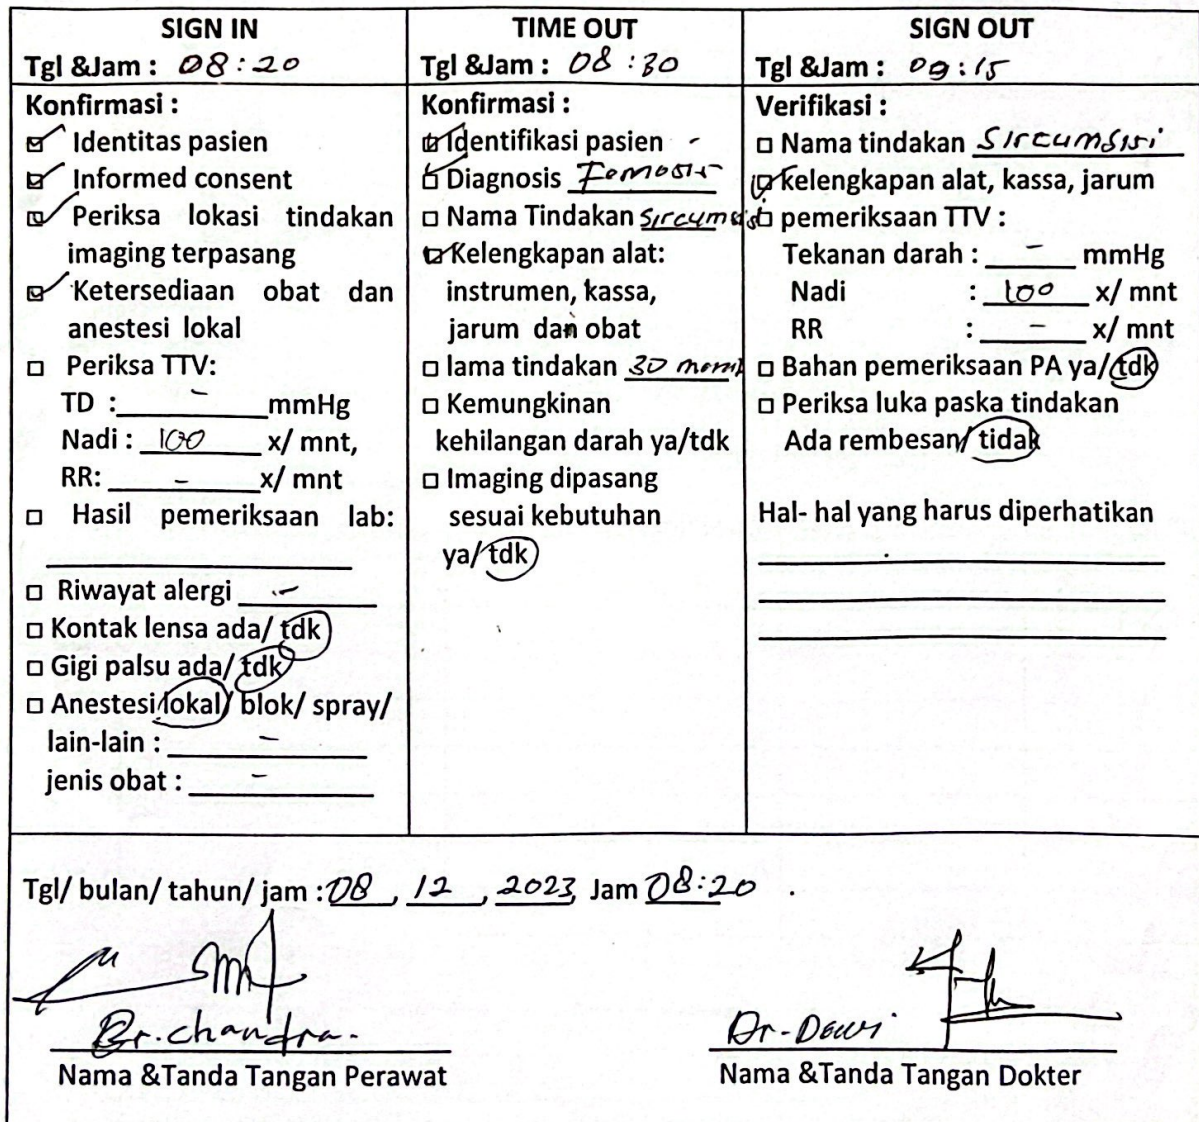 SIGN IN
Tgl &Jam : 08:20
Konfirmasi :
☑ Identitas pasien
☑ Informed consent
☑ Periksa lokasi tindakan
imaging terpasang
☑ Ketersediaan obat dan
anestesi lokal
□ Periksa TTV:
TD : - mmHg
Nadi : 100 x/ mnt,
RR: - x/ mnt
□ Hasil pemeriksaan lab:
□ Riwayat alergi -
□ Kontak lensa ada/ tdk
□ Gigi palsu ada/ tdk
□ Anestesi lokal/ blok/ spray/
lain-lain : -
jenis obat : -
TIME OUT
Tgl &Jam : 08:30
Konfirmasi :
☑ Identifikasi pasien -
☑ Diagnosis Fomosis
□ Nama Tindakan Sircumsisi
☑ Kelengkapan alat:
instrumen, kassa,
jarum dan obat
□ lama tindakan 30 menit
□ Kemungkinan
kehilangan darah ya/tdk
□ Imaging dipasang
sesuai kebutuhan
ya/ tdk
SIGN OUT
Tgl &Jam : 09:15
Verifikasi :
□ Nama tindakan Sircumsisi
☑ Kelengkapan alat, kassa, jarum
□ pemeriksaan TTV :
Tekanan darah : - mmHg
Nadi : 100 x/ mnt
RR : - x/ mnt
□ Bahan pemeriksaan PA ya/ tdk
□ Periksa luka paska tindakan
Ada rembesan/ tidak
Hal- hal yang harus diperhatikan
Tgl/ bulan/ tahun/ jam : 08, 12, 2023, Jam 08:20
Br. chandra.
Nama &Tanda Tangan Perawat
Dr-Dewi
Nama &Tanda Tangan Dokter